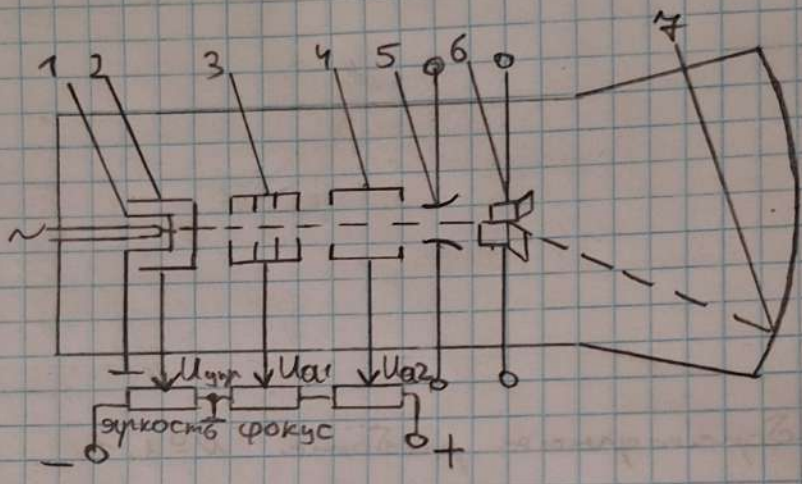 1 2 3 4 5 6 7
~
Uупр Ua1 Ua2
яркость фокус
- +